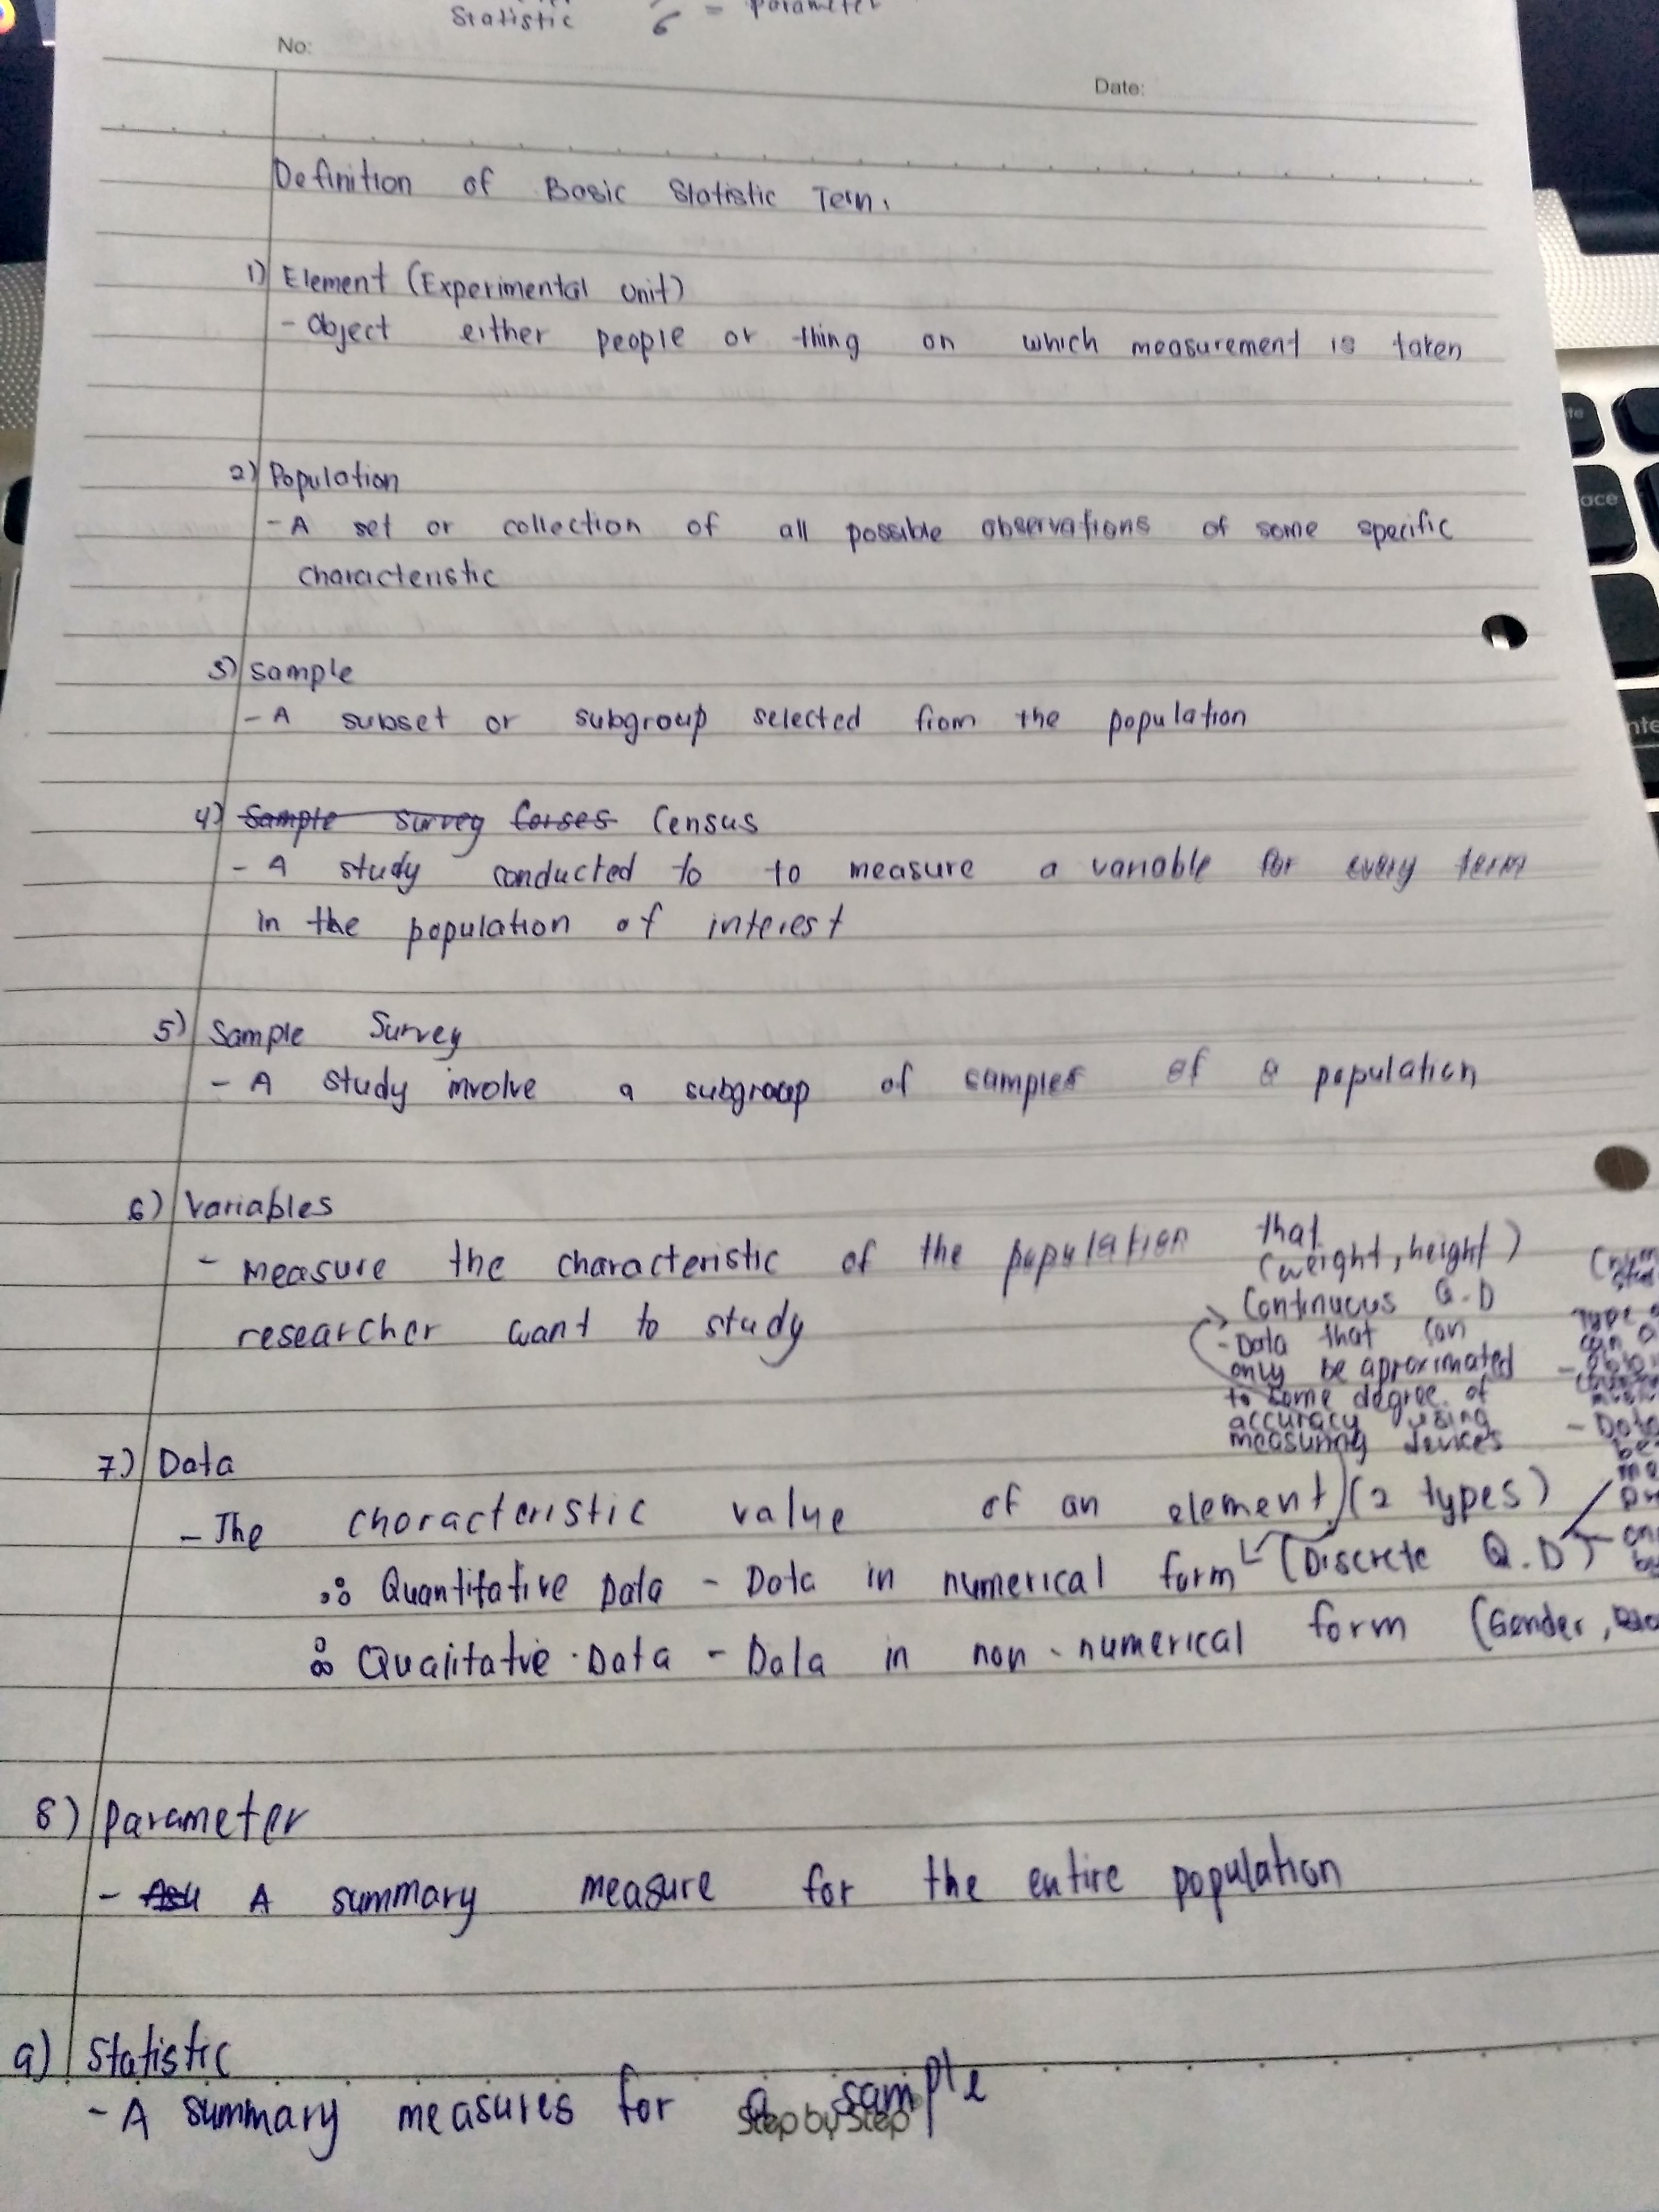 Statistic 6 = parameter
No:
Date:
Definition of Basic Statistic Term.
1) Element (Experimental Unit)
- Object either people or thing on which measurement is taken
2) Population
- A set or collection of all possible observations of some specific
characteristic
3) Sample
- A subset or subgroup selected from the population
4) Sample survey Census
- A study conducted to to measure a variable for every term
in the population of interest
5) Sample Survey
- A study involve a subgroup of samples of a population
6) Variables
- Measure the characteristic of the population that
researcher want to study
(weight, height)
Continuous Q.D
- Data that can
only be aproximated
to some degree of
accuracy using
measuring devices
7) Data
- The characteristic value of an element (2 types)
Quantitative Data - Data in numerical form (Discrete Q.D)
Qualitatve Data - Data in non-numerical form (Gender,
8) Parameter
- A summary measure for the entire population
9) Statistic
- A summary measures for a sample
Step by Step